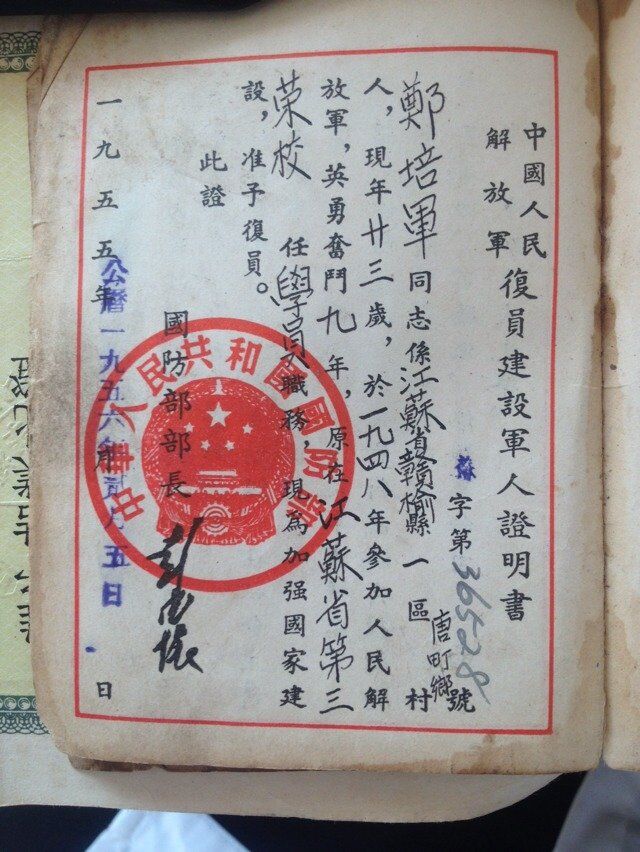 中國人民
解放軍
復員建設軍人證明書
字第36528號
鄭培軍同志係江蘇省贛榆縣一區唐町鄉村
人，現年廿三歲，於一九四八年參加人民解
放軍，英勇奮鬥九年，原在江蘇省第三
荣校任學員職務，現為加强國家建
設，准予復員。
此證
國防部部長
彭德懷
一九五五年月日
公曆一九五六年貳月五日
中華人民共和國國防部